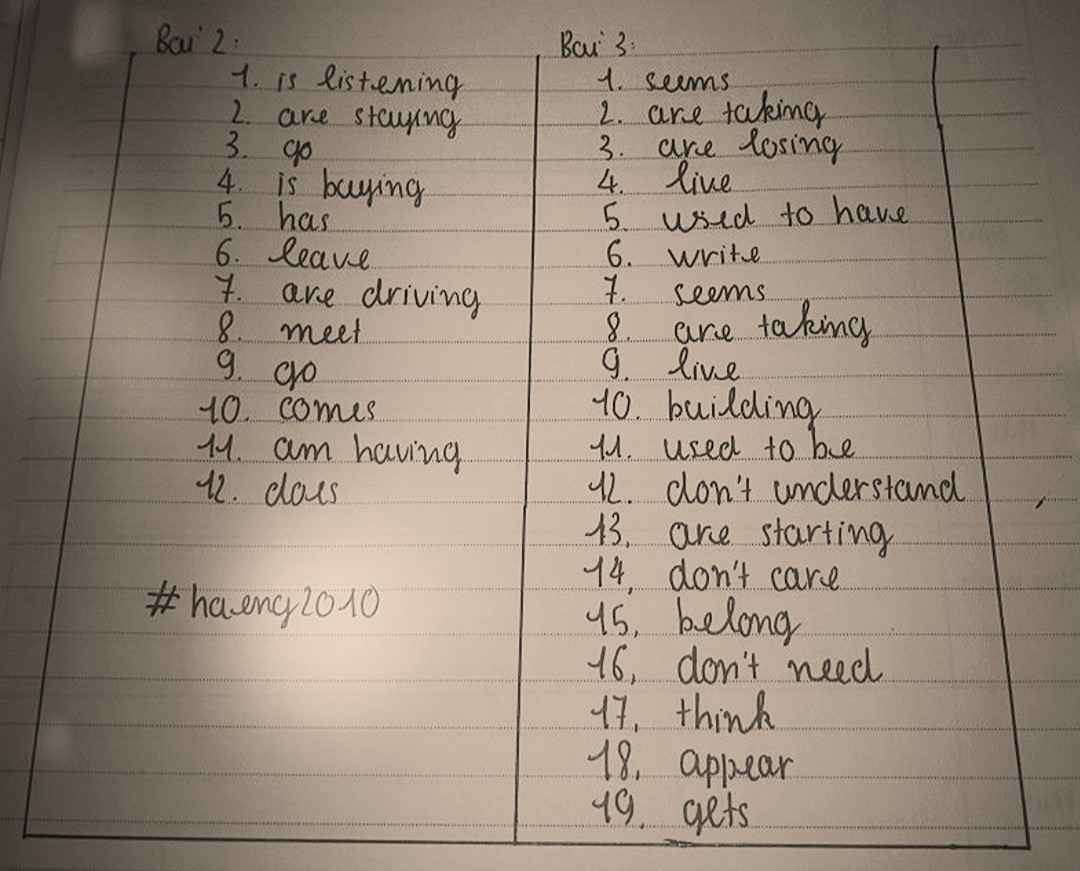 Bài 2:
1. is listening
2. are staying
3. go
4. is buying
5. has
6. leave
7. are driving
8. meet
9. go
10. comes
11. am having
12. does
#haeng2010
Bài 3:
1. seems
2. are taking
3. are losing
4. live
5. used to have
6. write
7. seems
8. are taking
9. live
10. building
11. used to be
12. don't understand
13, are starting
14, don't care
15, belong
16, don't need
17, think
18, appear
19, gets